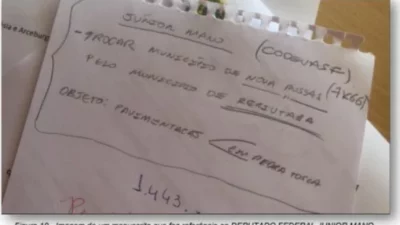 JUNIOR MANO (CODEVASF)
- TROCAR MUNICÍPIO DE NOVA RUSSAS
PELO MUNICÍPIO DE RERIUTABA
OBJETO: PAVIMENTAÇÃO EM PEDRA TOSCA
1.443.
Imagem de um manuscrito que faz referência ao DEPUTADO FEDERAL JUNIOR MANO